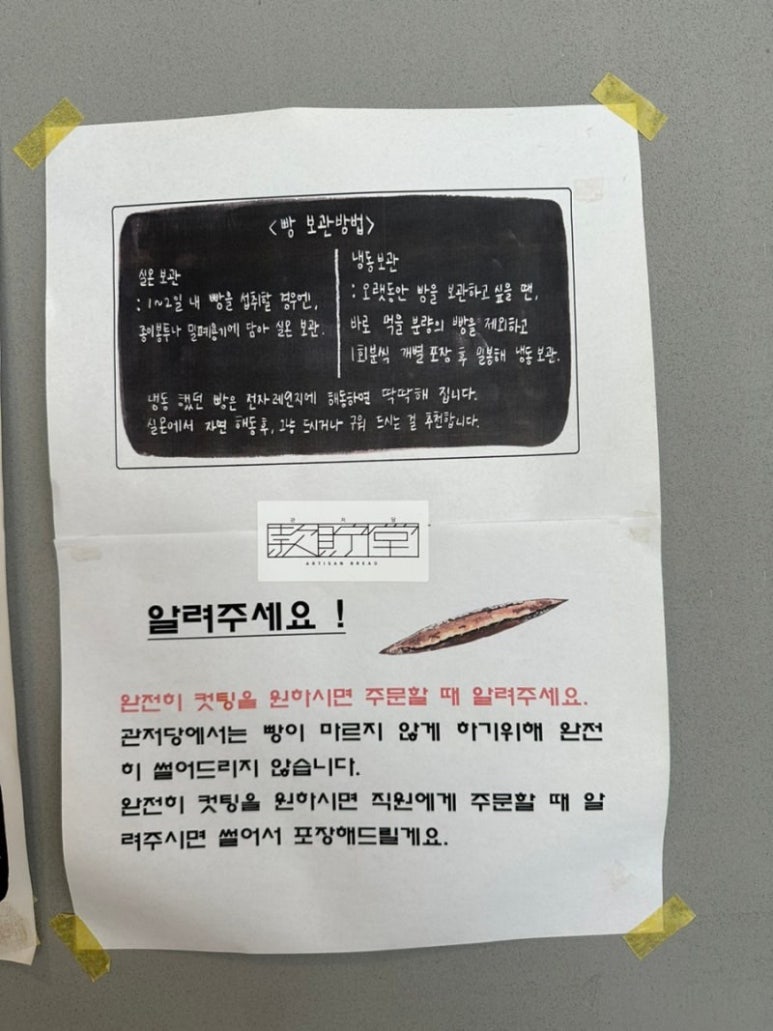 <빵 보관방법>
실온 보관
: 1~2일 내 빵을 섭취할 경우엔,
종이봉투나 밀폐용기에 담아 실온 보관.
냉동보관
: 오랫동안 빵을 보관하고 싶을 땐,
바로 먹을 분량의 빵을 제외하고
1회분씩 개별 포장 후 밀봉해 냉동 보관.
냉동 했던 빵은 전자레인지에 해동하면 딱딱해 집니다.
실온에서 자연 해동 후, 그냥 드시거나 구워 드시는 걸 추천합니다.
관 저 당
款貯堂
ARTISAN BREAD
알려주세요 !
완전히 컷팅을 원하시면 주문할 때 알려주세요.
관저당에서는 빵이 마르지 않게 하기위해 완전
히 썰어드리지 않습니다.
완전히 컷팅을 원하시면 직원에게 주문할 때 알
려주시면 썰어서 포장해드릴게요.